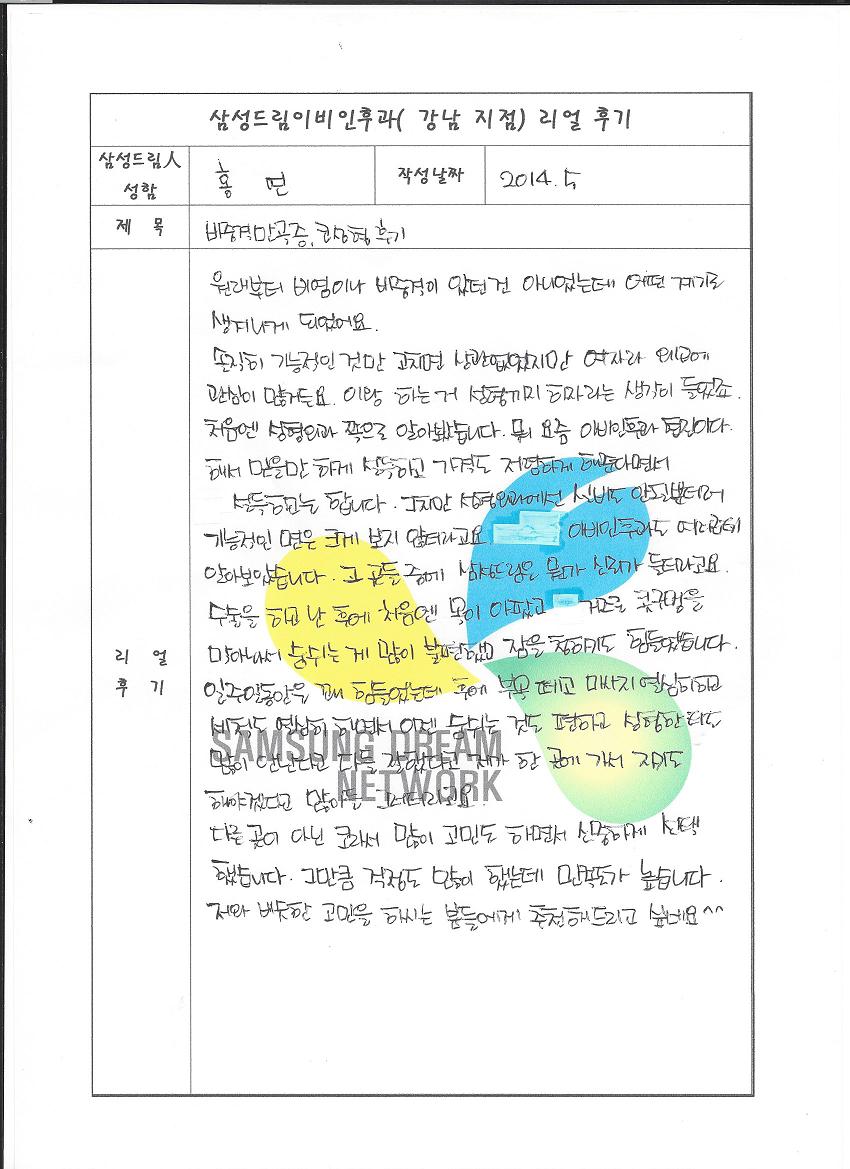 삼성드림이비인후과( 강남 지점) 리얼 후기
삼성드림人
성함
홍 민
작성날짜
2014. 5
제 목
비중격만곡증, 코성형 후기
리 얼
후 기
원래부터 비염이나 비중격이 있던건 아니었는데 어떤 계기로
생기나게 되었어요.
솔직히 기능적인 것만 고치면 상관없었지만 여자라 외모에
관심이 많거든요. 이왕 하는거 성형까지 하자라는 생각이 들었죠.
처음엔 성형외과 쪽으로 알아봤습니다. 뭐 요즘 이비인후과 협진이다.
해서 믿을만 하게 설득하고 가격도 저렴하게 해준다면서
설득하고는 합니다. 그치만 성형외과에선 실비도 안되더라
기능적인 면은 크게 보지 않더라고요 이비인후과도 여러군데
알아보았습니다. 그 곳들 중에 삼성드림은 뭔가 신뢰가 들더라고요.
수술을 하고 난 후에 처음엔 목이 아팠고 거즈로 콧구멍을
막아놔서 숨쉬는 게 많이 불편했고 잠을 청하기도 힘들었습니다.
일주일동안은 꽤 힘들었는데 후에 부목 떼고 마사지 열심히하고
세척도 열심히 하면서 이젠 숨쉬는 것도 편하고 성형한티도
많이 안난다고 다들 잘했다고 자기가 한 곳에 가서 자기도
해야겠다고 많이들 그러더라고요
다른 곳이 아닌 코라서 많이 고민도 하면서 신중하게 선택
했습니다. 그만큼 걱정도 많이 했는데 만족도가 높습니다.
저와 비슷한 고민을 하시는 분들에게 추천해드리고 싶네요^^
SAMSUNG DREAM
NETWORK